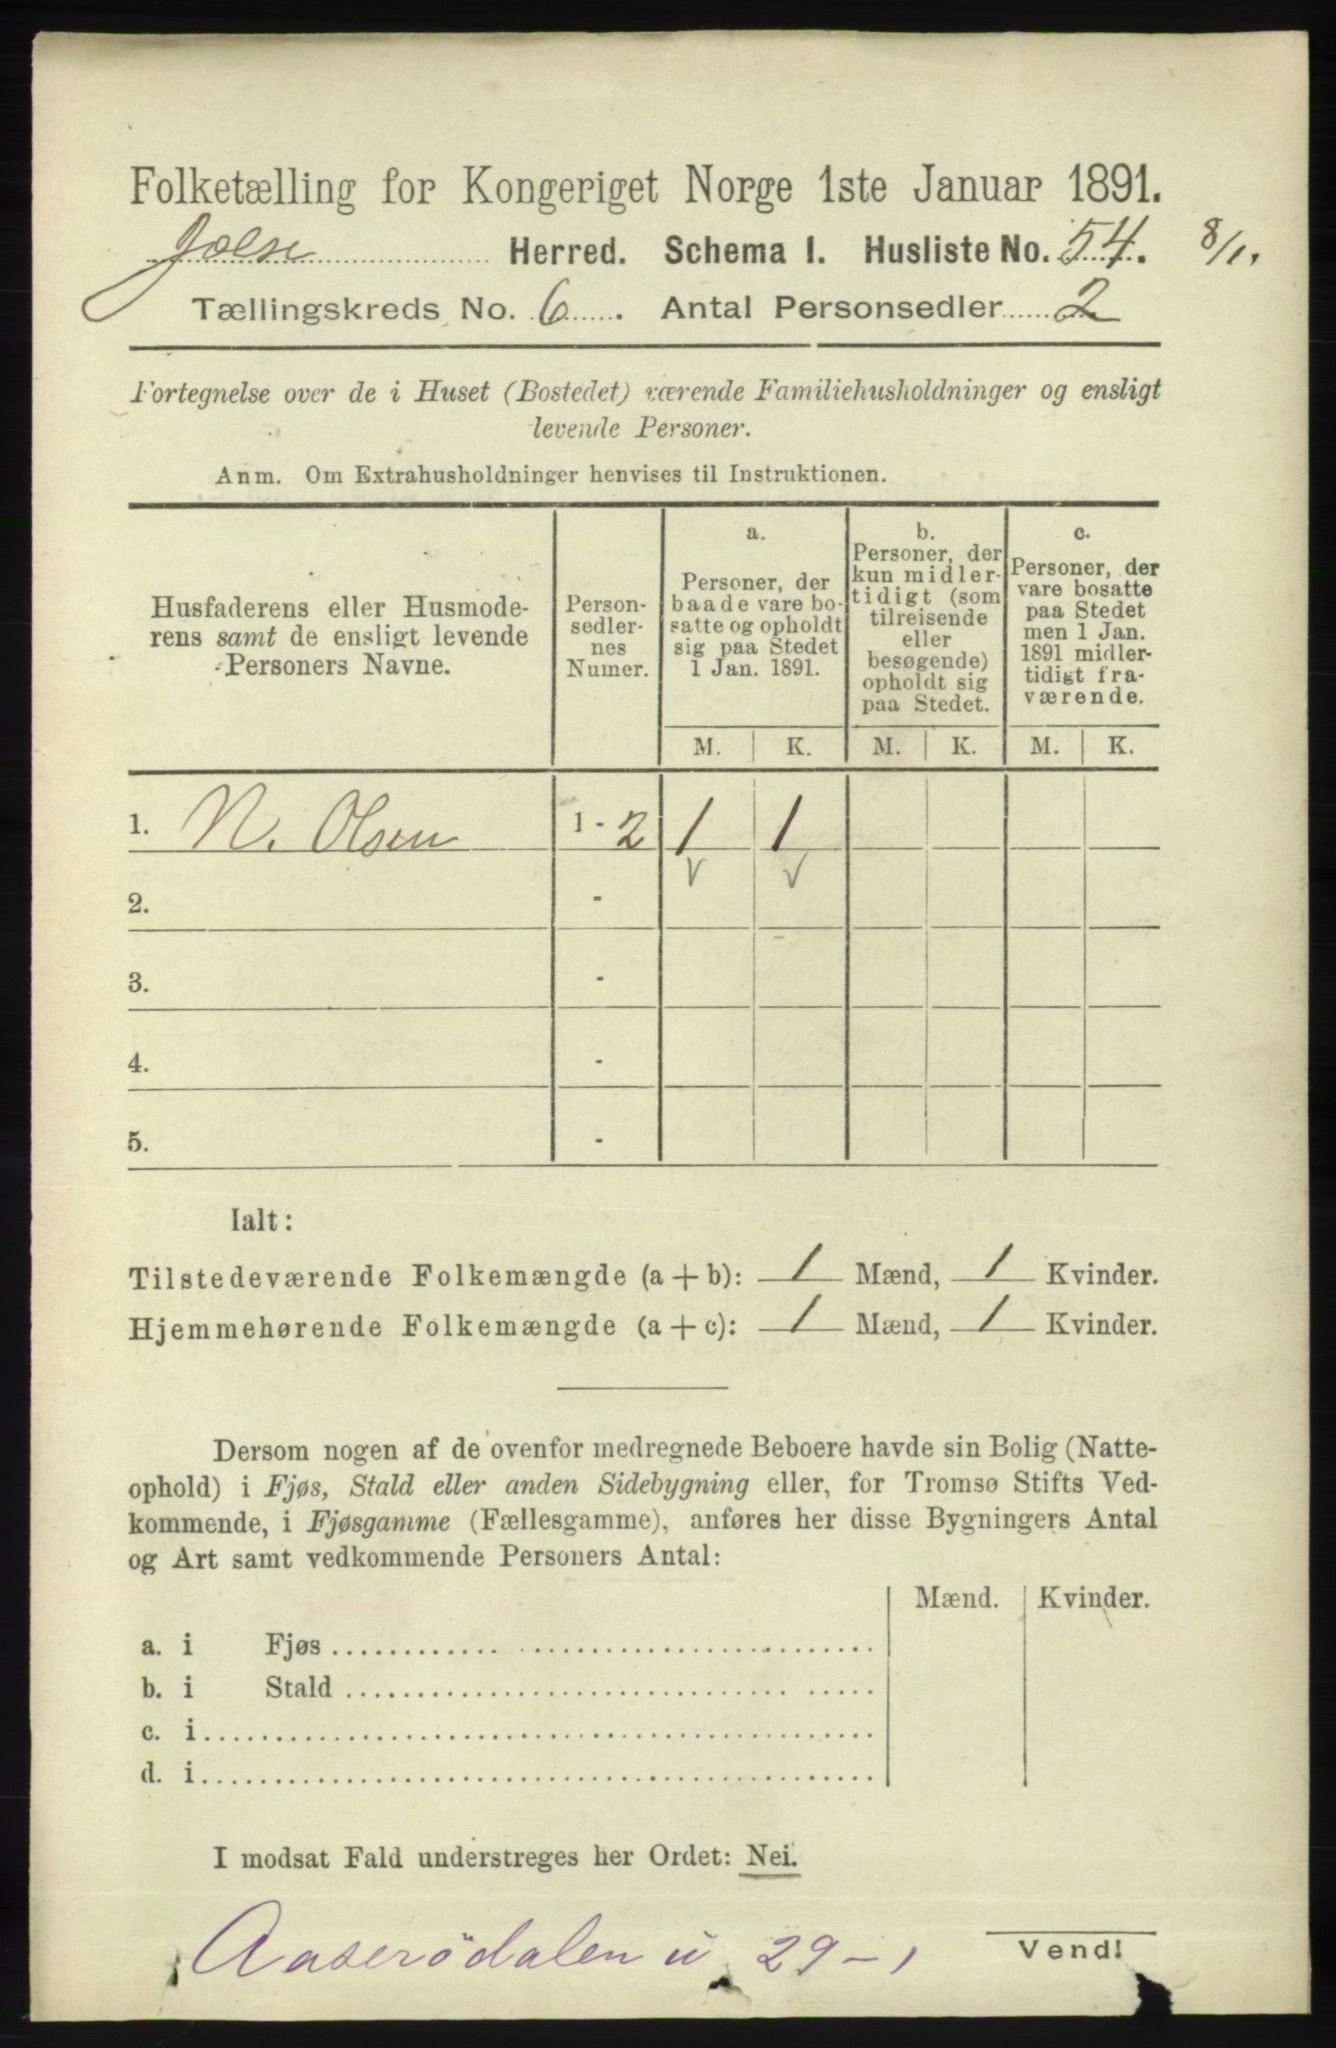 Folketælling for Kongeriget Norge 1ste Januar 1891.
Jælse Herred. Schema I. Husliste No. 54. 8/1.
Tællingskreds No. 6. Antal Personsedler 2
Fortegnelse over de i Huset (Bostedet) værende Familiehusholdninger og ensligt
levende Personer.
Anm. Om Extrahusholdninger henvises til Instruktionen.
Husfaderens eller Husmode-
rens samt de ensligt levende
Personers Navne.
Person-
sedler-
nes
Numer.
a.
Personer, der
baade vare bo-
satte og opholdt
sig paa Stedet
1 Jan. 1891.
b.
Personer, der
kun midler-
tidigt (som
tilreisende
eller
besøgende)
opholdt sig
paa Stedet.
c.
Personer, der
vare bosatte
paa Stedet
men 1 Jan.
1891 midler-
tidigt fra-
værende.
M. K. M. K. M. K.
1. N. Olsen 1 - 2 1 1
2. -
3. -
4. -
5. -
Ialt:
Tilstedeværende Folkemængde (a + b): 1 Mænd, 1 Kvinder.
Hjemmehørende Folkemængde (a + c): 1 Mænd, 1 Kvinder.
Dersom nogen af de ovenfor medregnede Beboere havde sin Bolig (Natte-
ophold) i Fjøs, Stald eller anden Sidebygning eller, for Tromsø Stifts Ved-
kommende, i Fjøsgamme (Fællesgamme), anføres her disse Bygningers Antal
og Art samt vedkommende Personers Antal:
Mænd. Kvinder.
a. i Fjøs
b. i Stald
c. i
d. i
I modsat Fald understreges her Ordet: Nei.
Aaserödalen u 29-1
Vend!